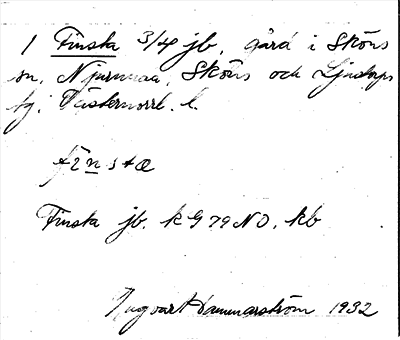 1 Finsta 3/4 jb, gård i Sköns
sn, Njurunda, Sköns och Ljustorps
tg. Västernorrl. l.
fìnsta
Finsta jb. k G 79 NO. kb
Ingvar Hammarström 1932